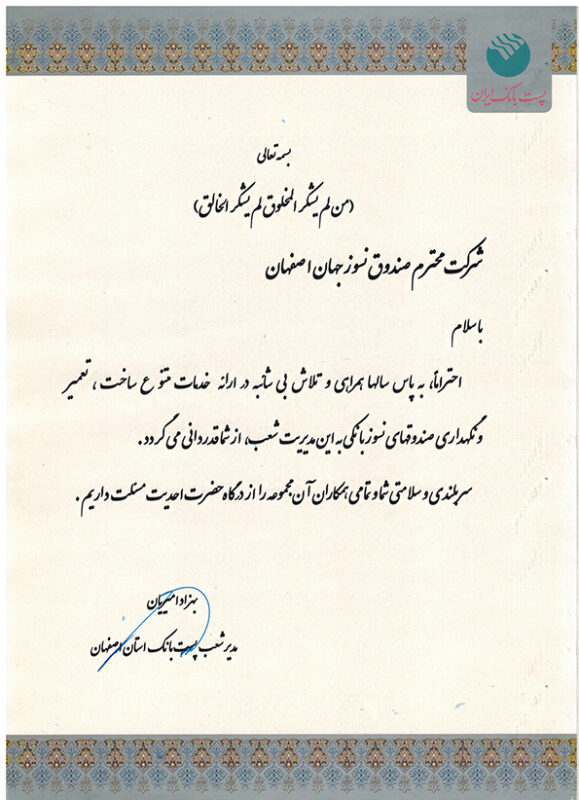 پست بانک ایران
بسمه تعالی
(من لم یشکر المخلوق لم یشکر الخالق)
شرکت محترم صندوق نسوز جهان اصفهان
باسلام
احتراماً، به پاس سالها همراهی و تلاش بی شائبه در ارائه خدمات متنوع ساخت، تعمیر
و نگهداری صندوقهای نسوز بانکی به این مدیریت شعب، از شما قدردانی می گردد.
سربلندی و سلامتی شما و تمامی همکاران آن مجموعه را از درگاه حضرت احدیت مسئلت داریم.
بهزاد امیریان
مدیر شعب پست بانک استان اصفهان